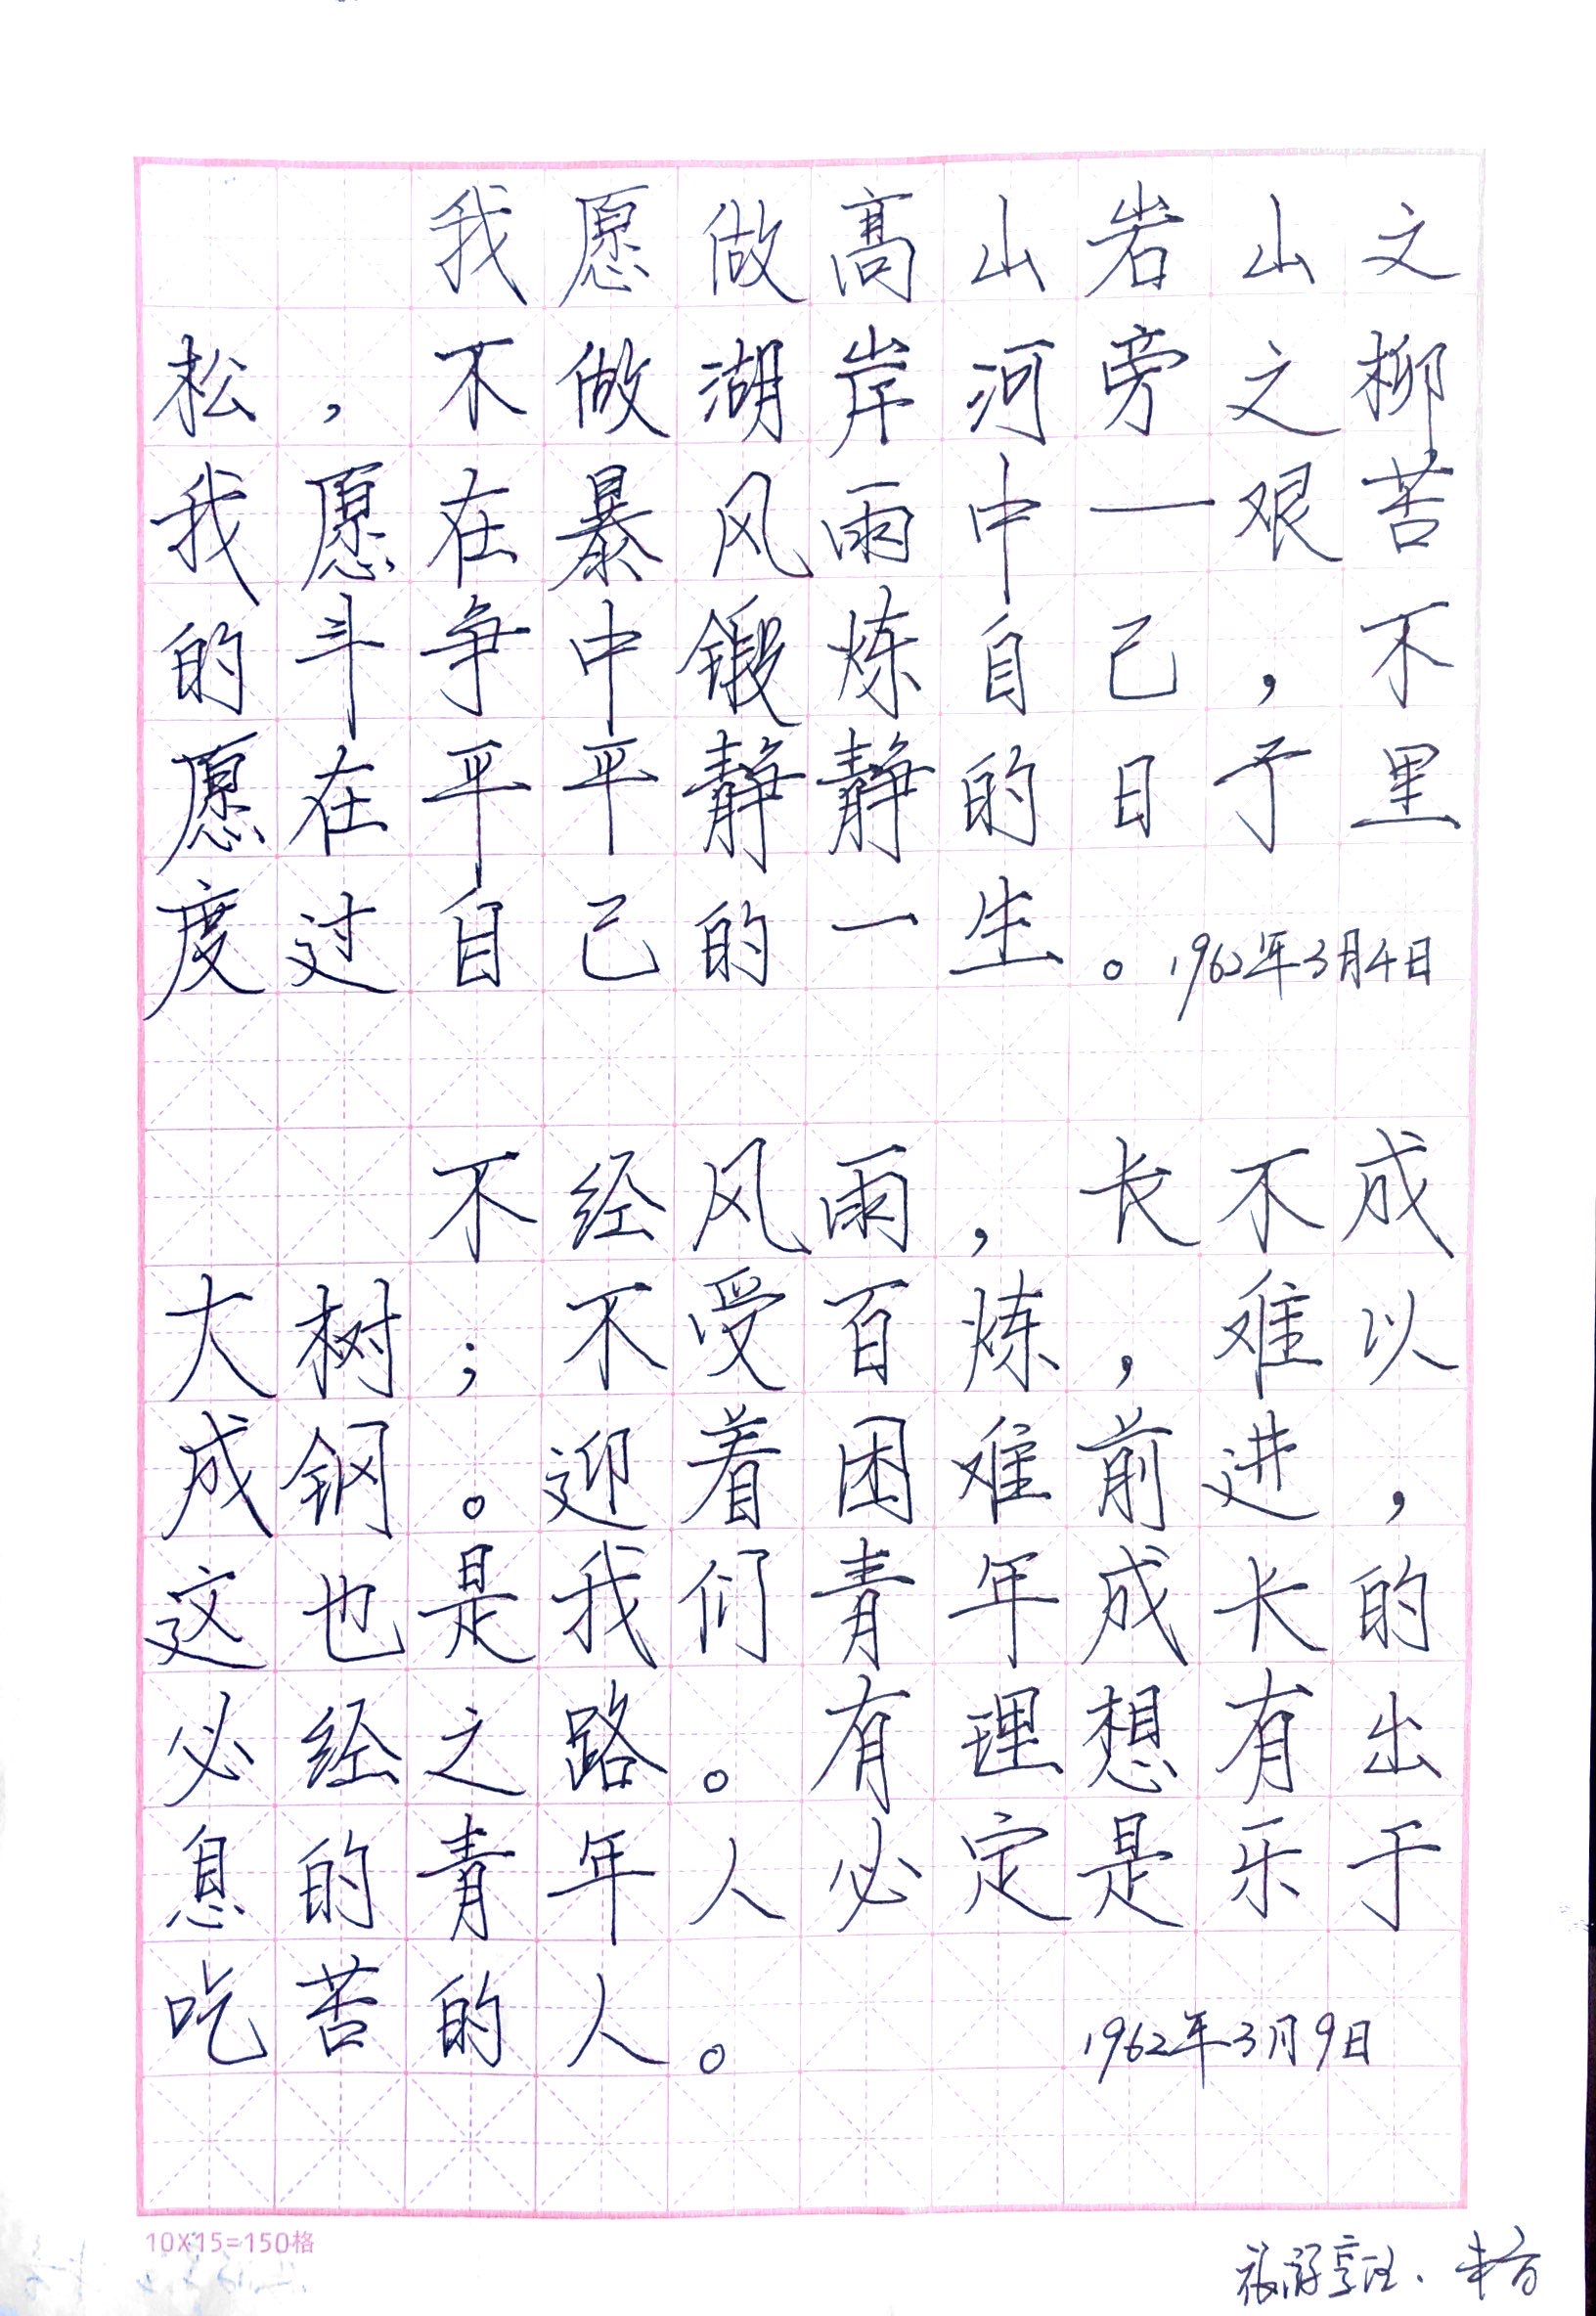 我愿做高山岩山文
松，不做湖岸河旁之柳，
我愿在暴风雨中一艰苦
的斗争中锻炼自己，不
愿在平平静静的日子里
度过自己的一生。1962年3月4日
不经风雨，长不成
大树；不受百炼，难以
成钢。迎着困难前进，
这也是我们青年成长的
必经之路。有理想有出
息的青年人必定是乐于
吃苦的人。 1962年3月9日
10X15=150格
旅游烹饪.